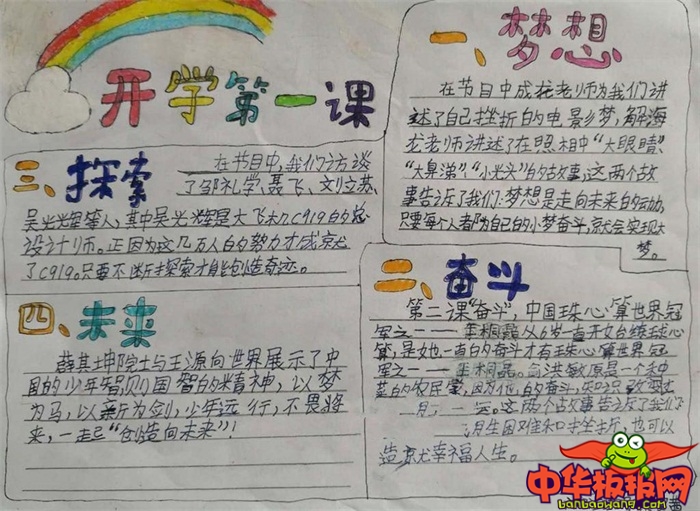 开学第一课
一、梦想
在节目中成龙老师为我们讲
述了自己挫折的电影梦，解海
龙老师讲述了在照相中“大眼睛”、
“大鼻涕”、“小光头”的故事，这两个故
事告诉了我们：梦想是走向未来的动力，
只要每个人都为自己的小梦奋斗，就会实现大
梦。
二、奋斗
第二课“奋斗”，中国珠心算世界冠
军之一
从6岁一直开始练珠心
算，是她一直的奋斗才有珠心算世界冠
军之一
洪敏原是一个种
菜的农民
，因为他的奋斗
这两个故事告诉了我们
生困难和挫折，也可以
造就幸福人生。
三、探索
在节目中，我们访谈
了邹礼学、聂飞、刘立苏、
吴光辉等人，其中吴光辉是大飞机C919的总
设计师。正因为这几万人的努力才成就
了C919。只要不断探索才能创造奇迹。
四、未来
薛其坤院士与王源向世界展示了中
国的少年智则国智的精神，以梦
为马，以新为剑，少年远行，不畏将
来，一起“创造向未来”！
中华板报网
banbaowang.com